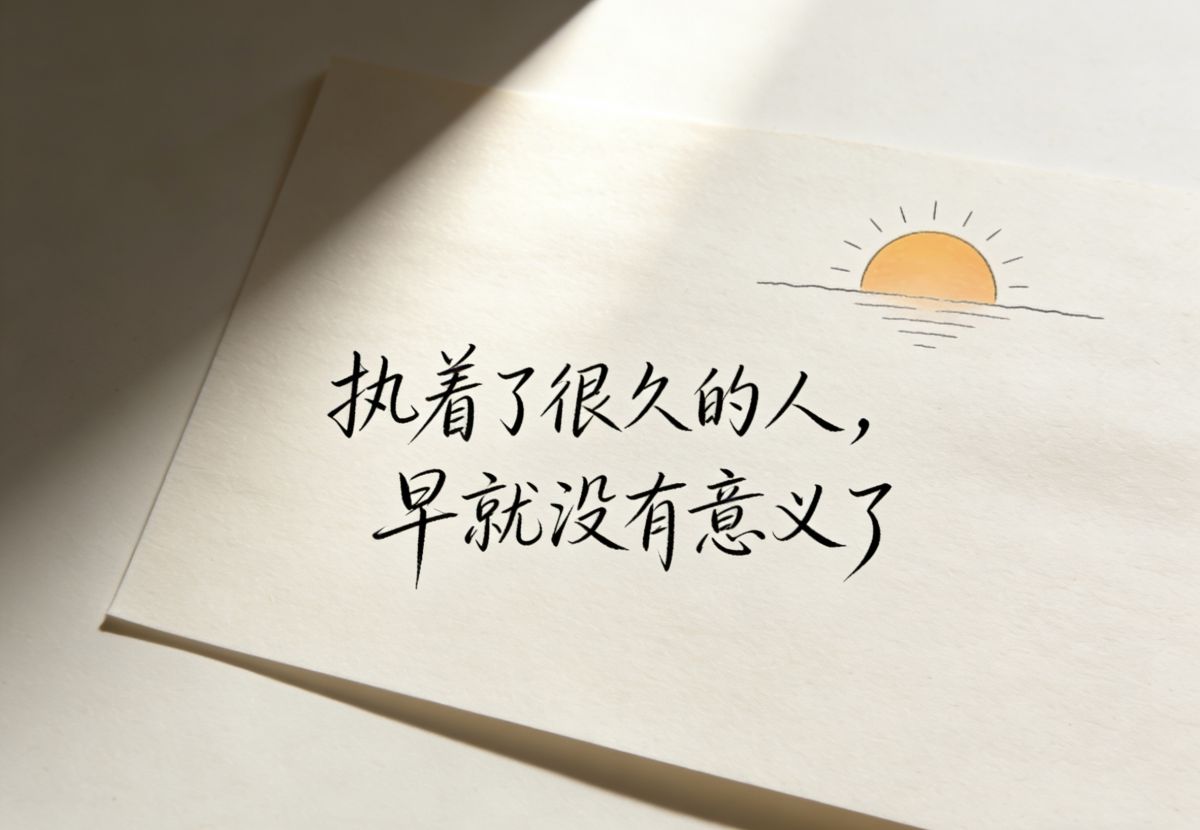 执着了很久的人，
早就没有意义了